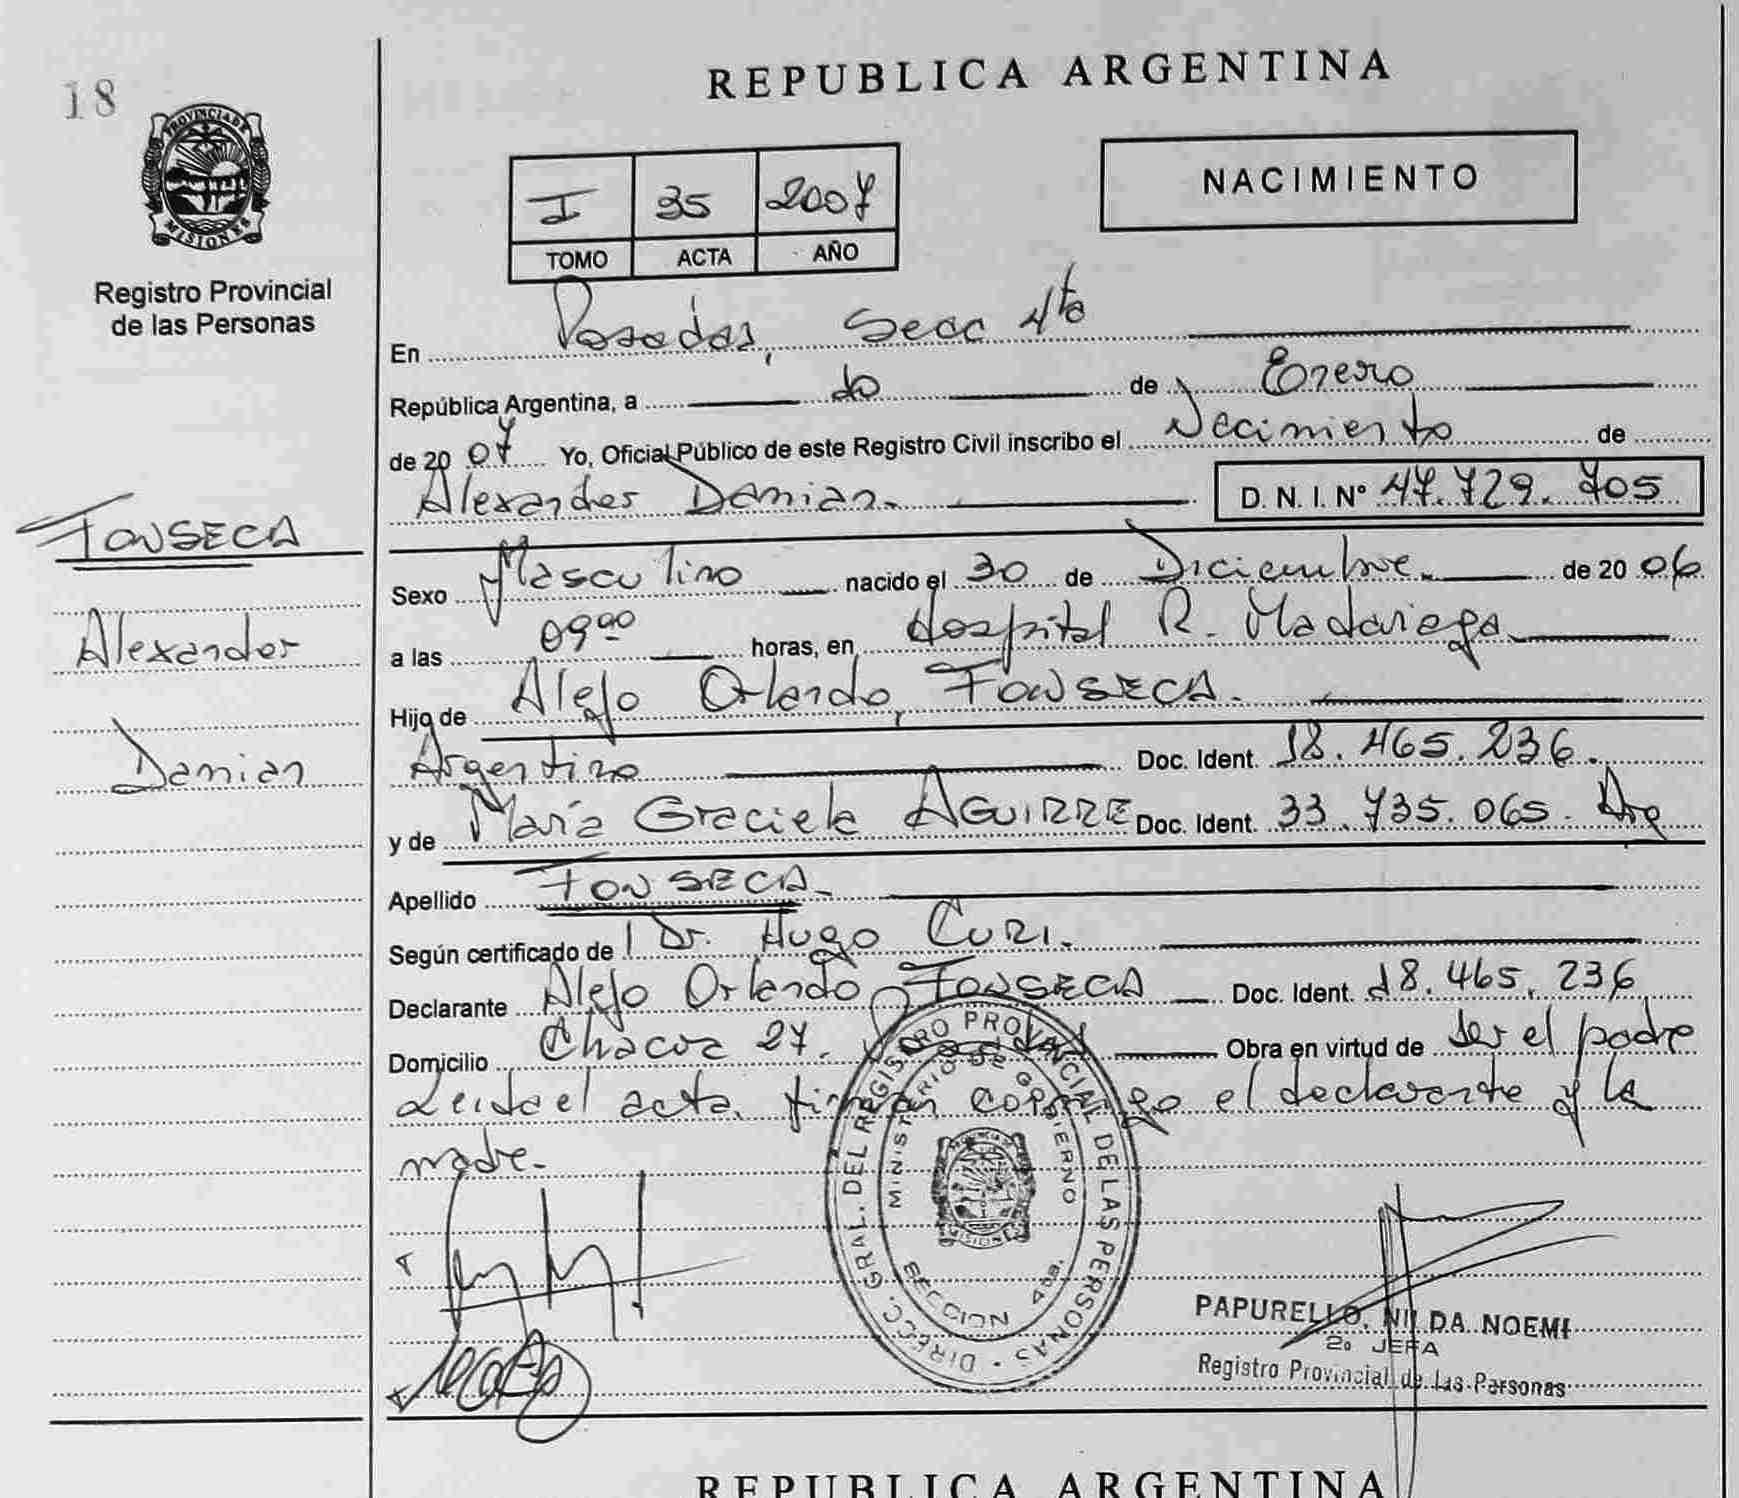 18
REPUBLICA ARGENTINA
PROVINCIA DE MISIONES
Registro Provincial
de las Personas
I 35 2007
TOMO ACTA AÑO
NACIMIENTO
En Posadas, Secc 4ta
República Argentina, a 10 de Enero
de 2007 Yo, Oficial Público de este Registro Civil inscribo el Nacimiento de
Alexander Damian. D. N. I. Nº 47.729.705
FONSECA
Alexander
Damian
Sexo Masculino nacido el 30 de Diciembre. de 2006
a las 09 00 horas, en Hospital R. Madariaga.
Hijo de Alejo Orlando, FONSECA.
Argentino Doc. Ident. 18.465.236.
y de María Graciela AGUIRRE Doc. Ident. 33.735.065. Arg
Apellido FONSECA.
Según certificado de l Dr. Hugo CURI.
Declarante Alejo Orlando FONSECA Doc. Ident. 18.465.236
Domicilio Chacra 27. Obra en virtud de ser el padre
Leida el acta, firman conmigo el declarante y la
madre.
DIRECC. GRAL. DEL REGISTRO PROVINCIAL DE LAS PERSONAS
MINISTERIO DE GOBIERNO
SECCION 4ta.
MISIONES
PAPURELLO, NILDA NOEMI
2º JEFA
Registro Provincial de las Personas
REPUBLICA ARGENTINA